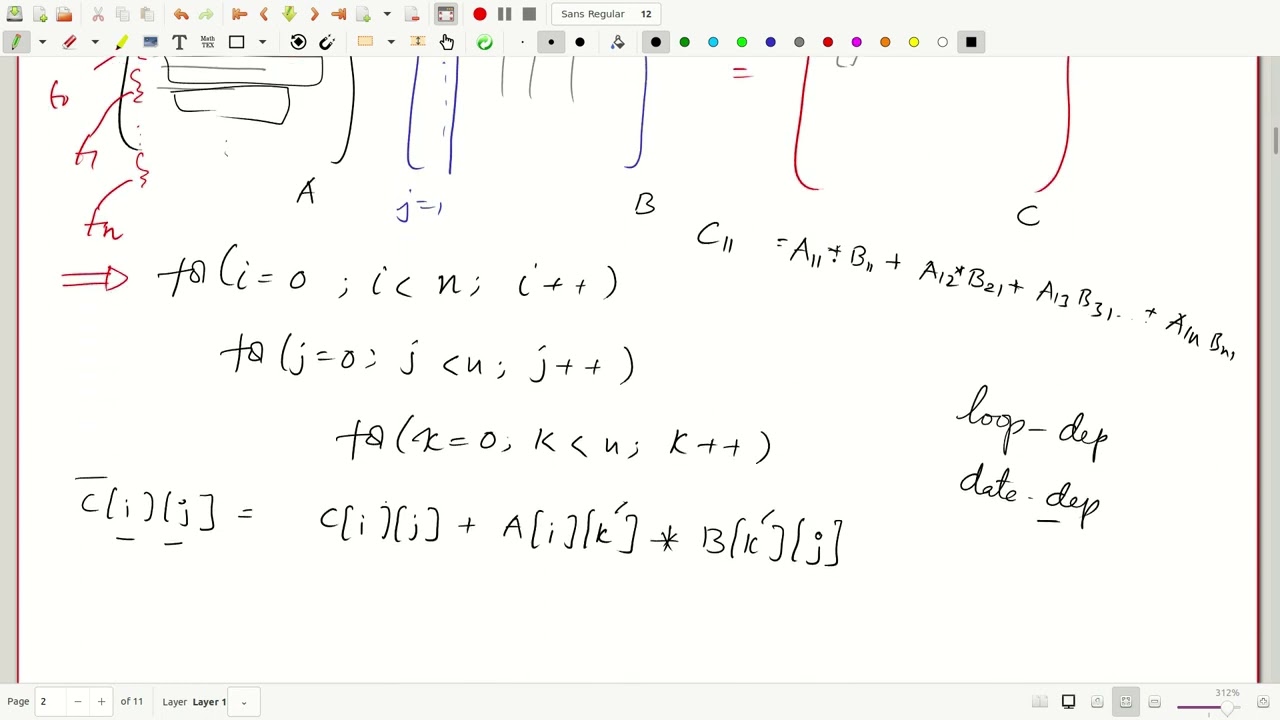 Sans Regular 12
T Math TEX
t0
t1
tn
A
j=1
B
=
C
C11 = A11 * B11 + A12 * B21 + A13 B31 ... + A1n Bn1
⇒ for (i = 0 ; i < n ; i++)
for (j = 0 ; j < n ; j++)
for (k = 0 ; k < n ; k++)
C[i][j] = C[i][j] + A[i][k] * B[k][j]
loop - dep
date - dep
Page 2 − + of 11 Layer Layer 1
312%